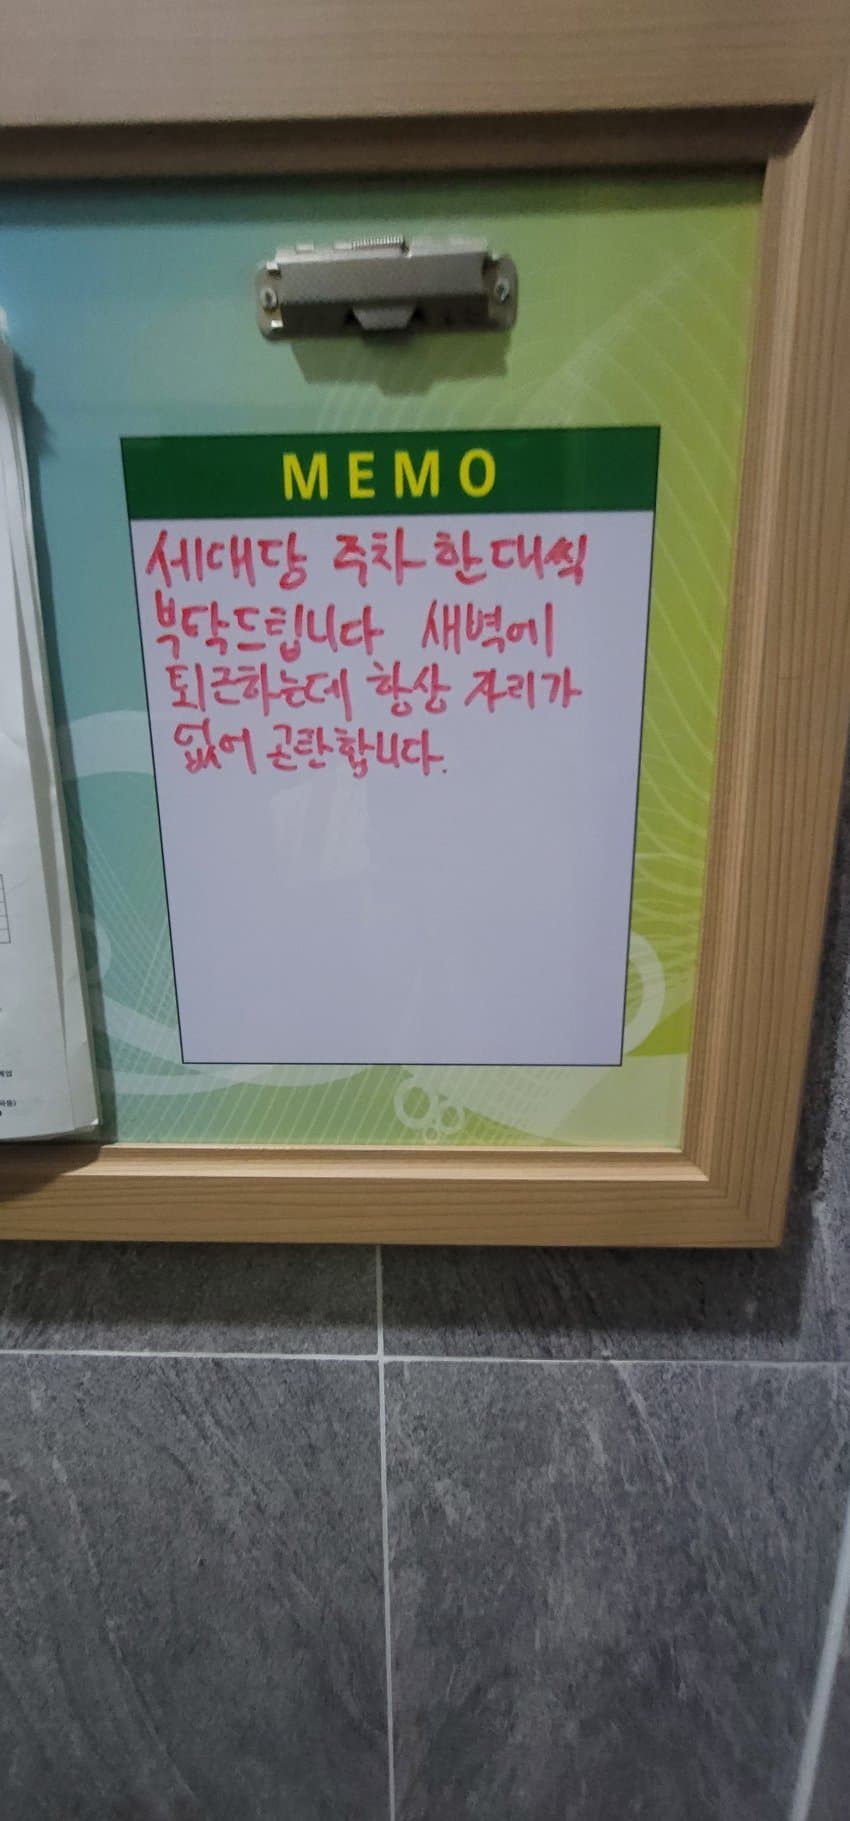 MEMO
세대당 주차 한대씩
부탁드립니다 새벽에
퇴근하는데 항상 자리가
없어 곤란합니다.